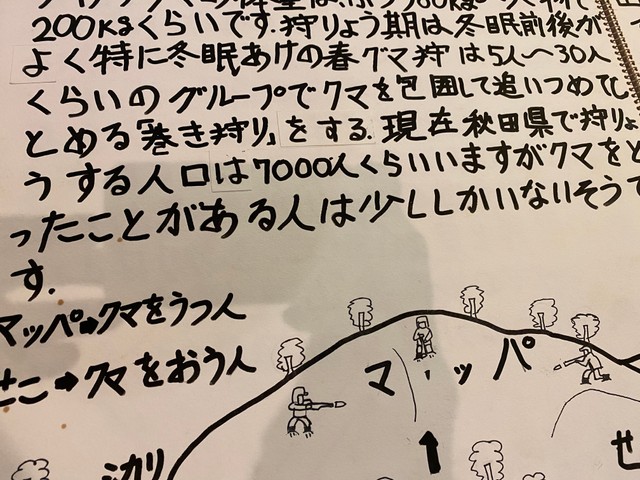 200Kgくらいです.狩りょう期は冬眠前後が
よく特に冬眠あけの春グマ狩は5人〜30人
くらいのグループでクマを包囲して追いつめてひ
とめる「巻き狩り」をする.現在秋田県で狩りょ
うする人口は7000人くらいいますがクマをと
ったことがある人は少ししかいないそうで
す.
マッパ➡クマをうつ人
せこ➡クマをおう人
マッパ
シカリ
せ